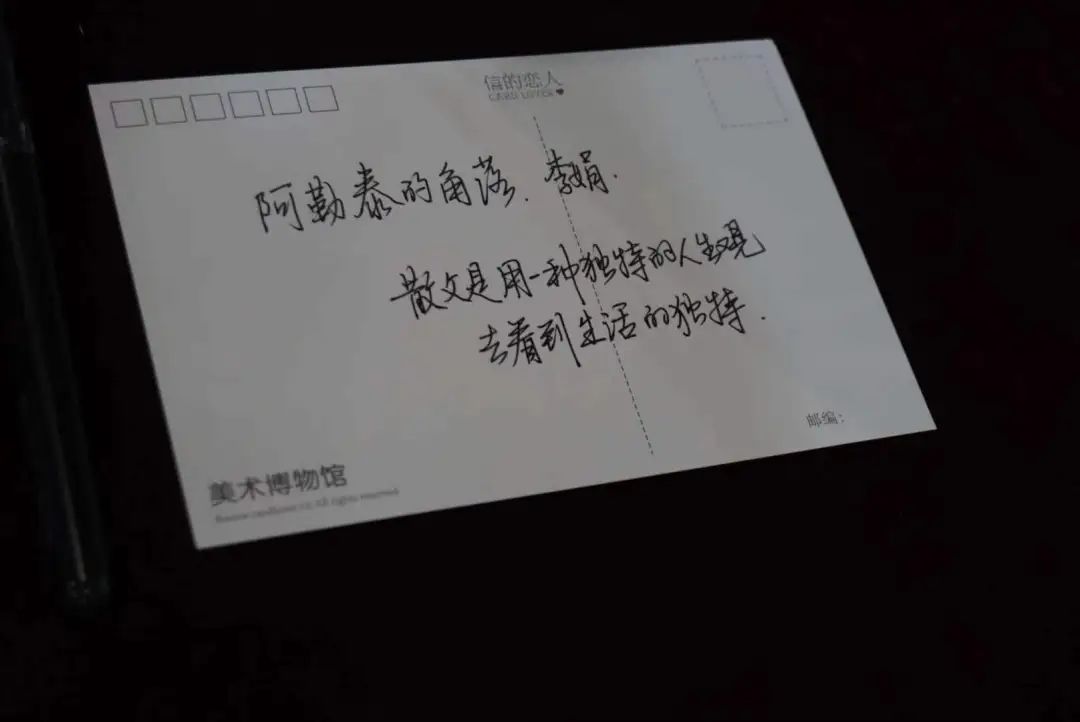 信的恋人
CARD LOVER♥
阿勒泰的角落. 李娟.
散文是用一种独特的人生观
去看到生活的独特.
邮编:
美术博物馆
All rights reserved